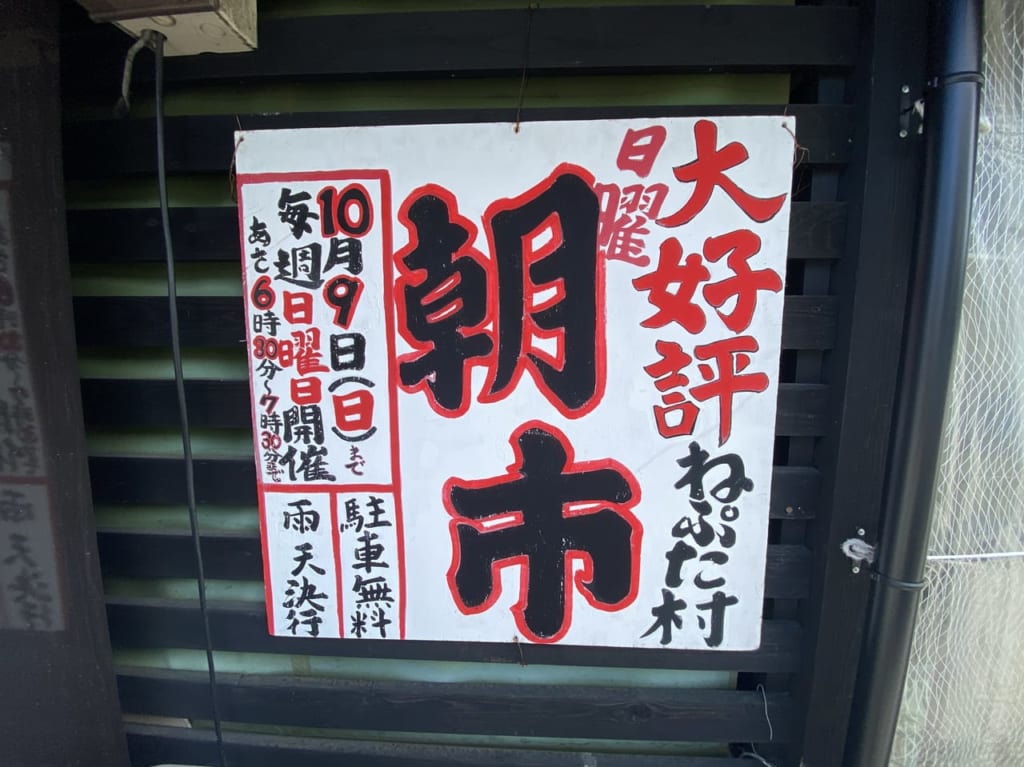 大好評ねぷた村
日曜
朝市
10月9日(日)まで
毎週日曜日開催
あさ6時30分〜7時30分まで
駐車無料
雨天決行